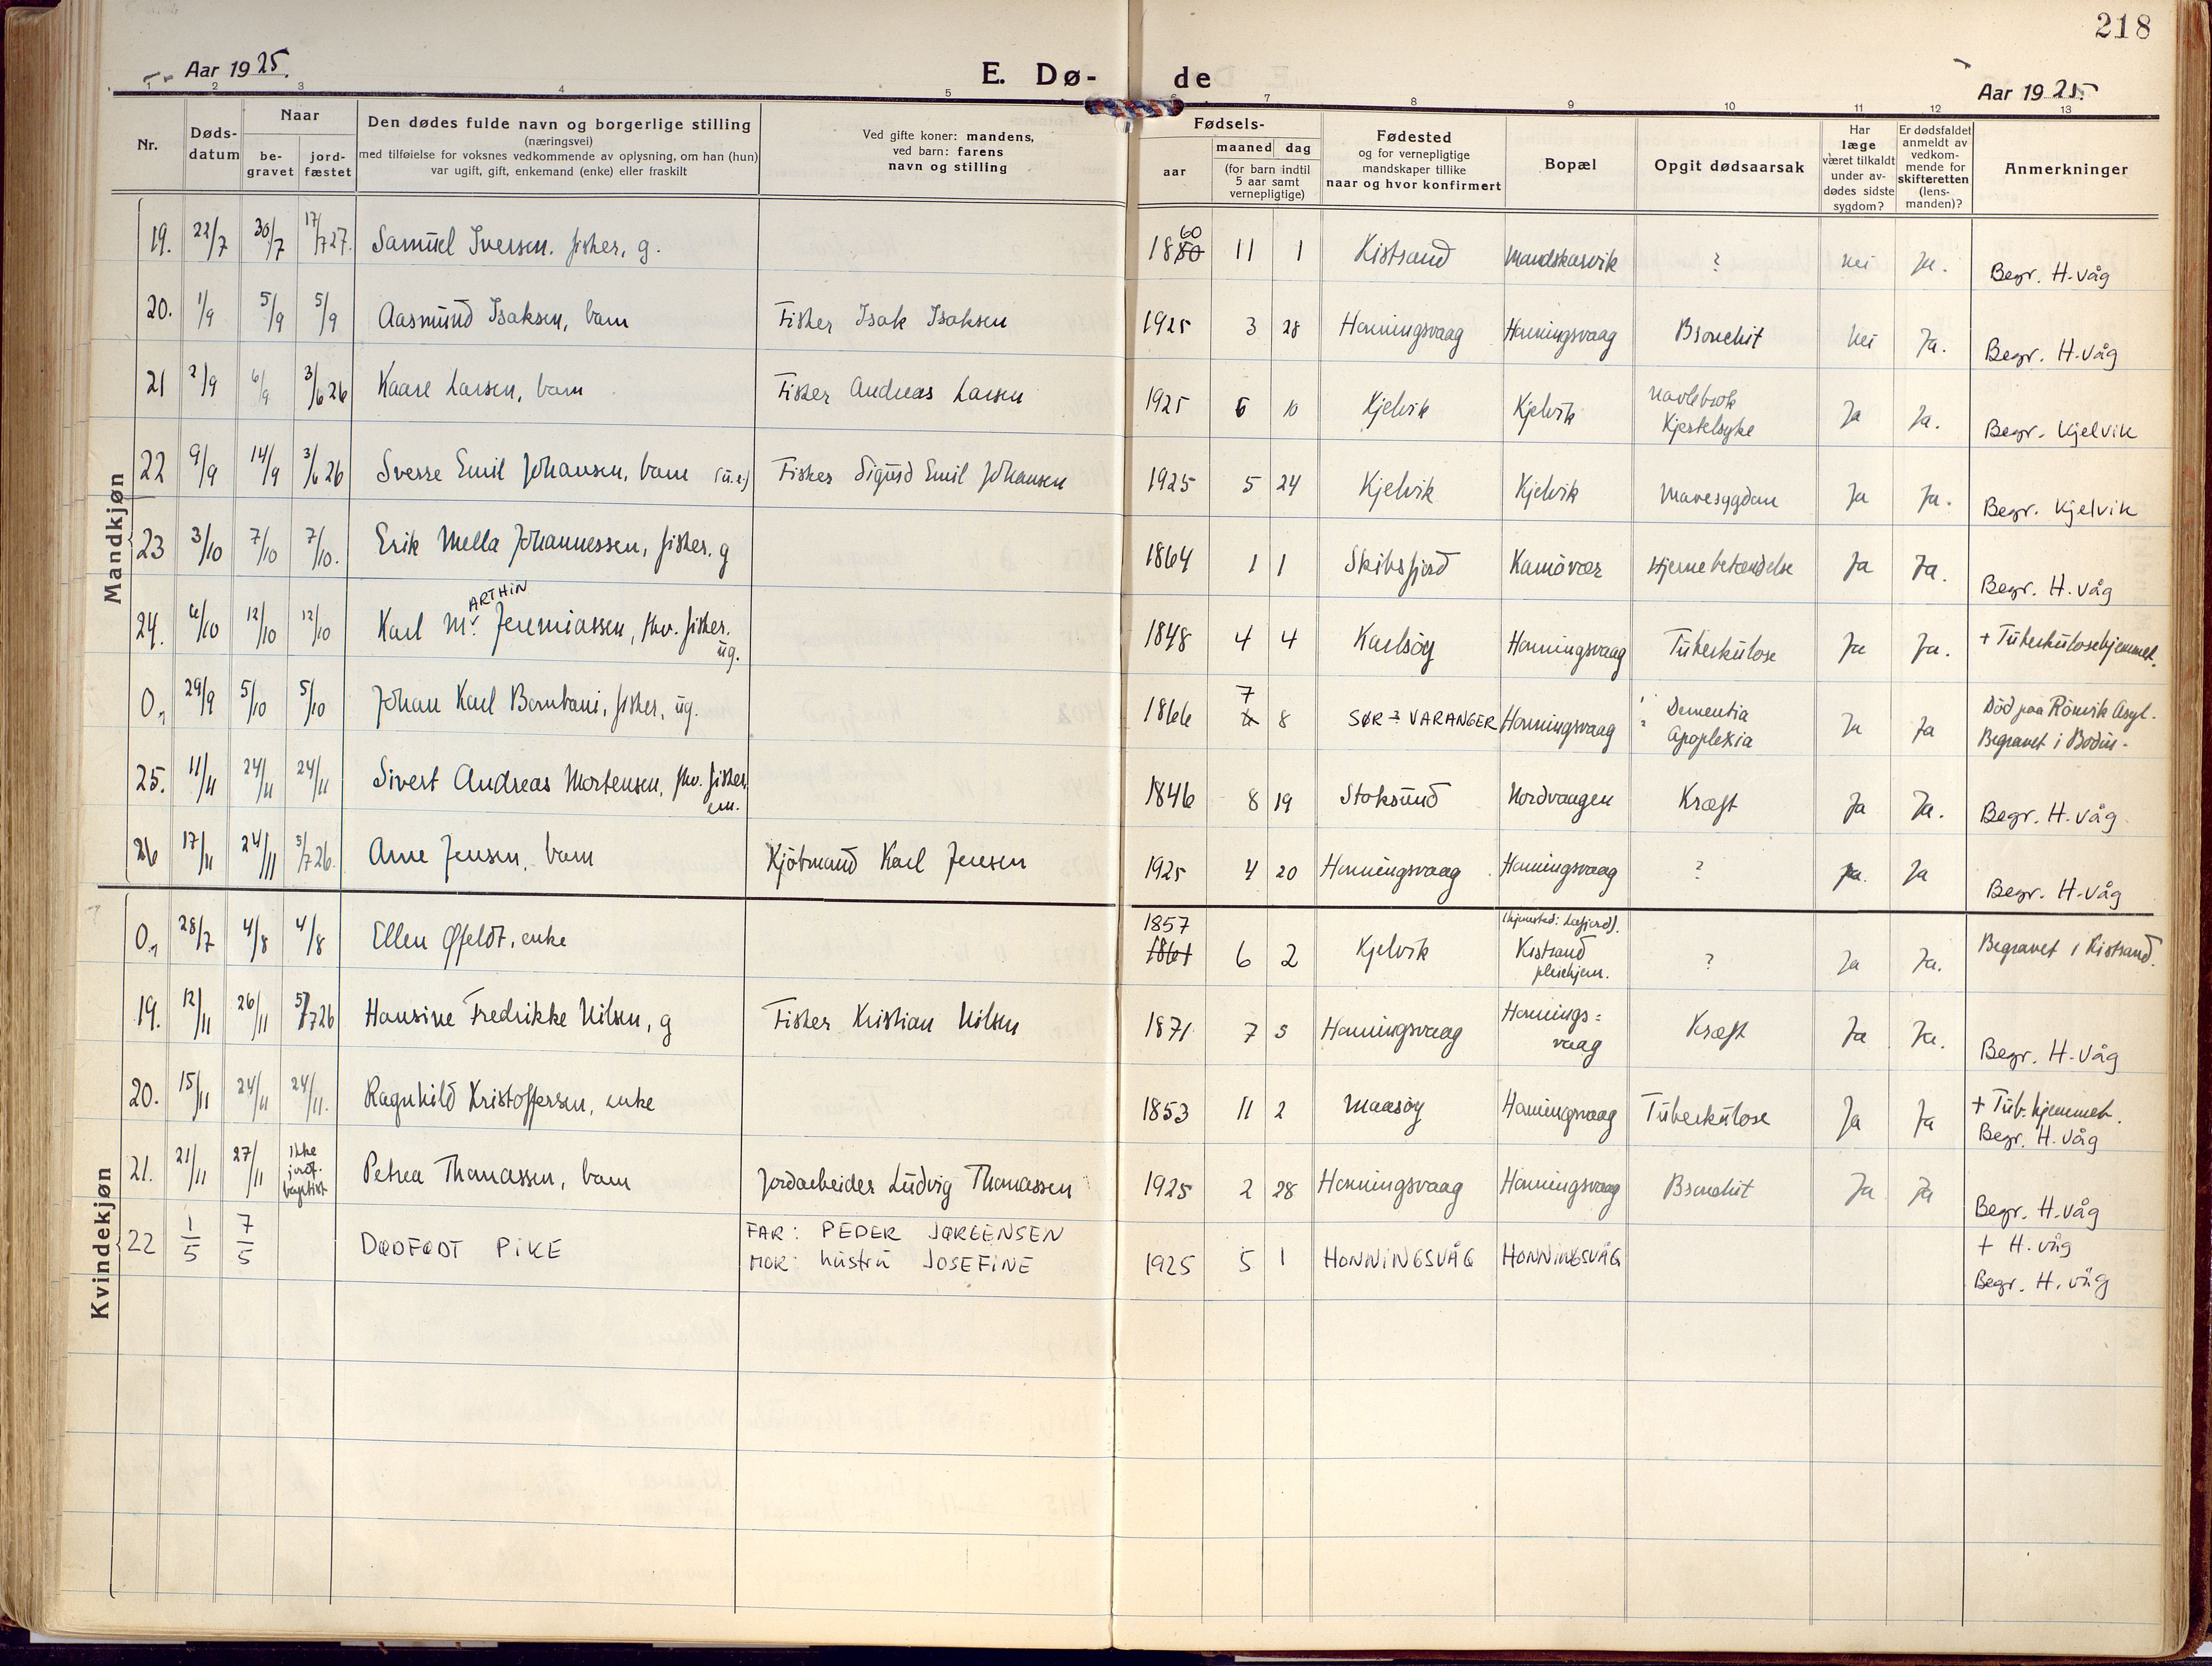 218
Aar 1925.
E. Dø-de
Aar 1925.
1 2 3 4 5 6 7 8 9 10 11 12 13
Nr.
Døds-datum
Naar
be-gravet
jord-fæstet
Den dødes fulde navn og borgerlige stilling
(næringsvei)
med tilføielse for voksnes vedkommende av oplysning, om han (hun)
var ugift, gift, enkemand (enke) eller fraskilt
Ved gifte koner: mandens,
ved barn: farens
navn og stilling
Fødsels-
aar
maaned dag
(for barn indtil
5 aar samt
vernepligtige)
Fødested
og for vernepligtige
mandskaper tillike
naar og hvor konfirmert
Bopæl
Opgit dødsaarsak
Har
læge
været tilkaldt
under av-
dødes sidste
sygdom?
Er dødsfaldet
anmeldt av
vedkom-
mende for
skifteretten
(lens-
manden)?
Anmerkninger
Mandkjøn
19. 22/7 30/7 17/7 27. Samuel Iversen. fisker, g. 1880 60 11 1 Kistrand Mandskarvik ? nei Ja. Begr. H.våg
20. 1/9 5/9 5/9 Aasmund Isaksen, barn Fisker Isak Isaksen 1925 3 28 Honningsvaag Honningsvaag Bronchit Nei Ja. Begr. H.våg
21 2/9 6/9 3/6 26 Kaare Larsen, barn Fisker Andreas Larsen 1925 6 10 Kjelvik Kjelvik Navlebrok
Kjertelsyke Ja Ja. Begr. Kjelvik
22 9/9 14/9 3/6 26 Sverre Emil Johansen, barn (u.e.) Fisker Sigurd Emil Johansen 1925 5 24 Kjelvik Kjelvik Mavesygdom Ja Ja. Begr. Kjelvik
23 3/10 7/10 7/10. Erik Mella Johannessen, fisker. g 1864 1 1 Skibsfjord Kamøvær Hjernebetændelse Ja Ja. Begr. H.våg
ARTHIN
24. 6/10 12/10 12/10 Karl M. Jeremiassen, fhv. fisker.
ug. 1848 4 4 Karlsøy Honningsvaag Tuberkulose Ja Ja. + Tuberkulosehjemmet.
0. 29/9 5/10 5/10 Johan Karl Bombani, fisker, ug. 1866 7 8 SØR-VARANGER Honningsvaag Dementia
Apoplexia Ja Ja Död paa Rönvik Asyl.
Begravet i Bodin.
25. 11/11 24/11 24/11 Sivert Andreas Mortensen, fhv. fisker
em. 1846 8 19 Stoksund Nordvaagen Kræft Ja Ja. Begr. H.våg
26 17/11 24/11 5/7 26. Arne Jensen, barn Kjötmand Karl Jensen 1925 4 20 Honningsvaag Honningsvaag ? Ja. Ja Begr. H.våg
Kvindekjøn
0. 28/7 4/8 4/8 Ellen Øfeldt, enke 1857 1861 6 2 Kjelvik (hjemsted: Lafjord).
Kistrand
pleiehjem. ? Ja Ja. Begravet i Kistrand.
19. 12/11 26/11 5/7 26 Hansine Fredrikke Nilsen, g Fisker Kristian Nilsen 1871 7 5 Honningsvaag Honnings=
vaag Kræft Ja Ja. Begr. H.våg
20. 15/11 24/11 24/11. Ragnhild Kristoffersen, enke 1853 11 2 Maasøy Honningsvaag Tuberkulose Ja Ja + Tub.hjemmet.
Begr. H.våg
21. 21/11 27/11 Ikke
jordf.
baptist Petrea Thomassen, barn Jordarbeider Ludvig Thomassen 1925 2 28 Honningsvaag Honningsvaag Bronchit Ja Ja Begr. H.våg
22 1/5 7/5 DØDFØDT PIKE FAR: PEDER JØRGENSEN
MOR: hustru JOSEFINE 1925 5 1 HONNINGSVÅG HONNINGSVÅG + H.våg
Begr. H.våg